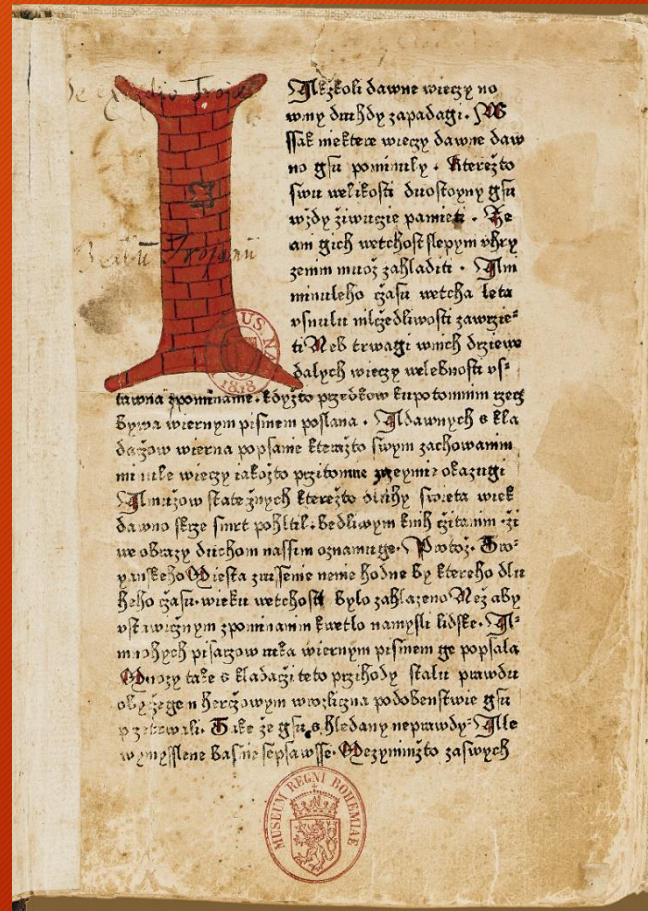 Akžkoli dawne wieczy no
wny druhdy zapadagi. W
ssak niektere wieczy dawne daw
no gsu pominuly. Kterežto
swu welikosti duostoyny gsu
wždy žiwuczie pamieti. Že
ani gich wetchost slepym vhry
zenim muož zahladiti. Am
minuleho czasu wetcha leta
vsnulu mlčedliwosti zawrzie-
ti Neb trwagi wnich drziewe
dalych wieczy welebnosti vs-
tawna zpominanie. kdyžto przedkow kupotomnim rzecz
bywa wiernym pismem poslana. A dawnych skla
daczow wierna popsanie kteražto swym zachowanim
mi nule wieczy iakožto przitomne okazugi
A mužow state žnych kterežto dluhy swieta wiek
dawno skrze smrt pohltil. bedliwym knih cžitanim. ži
we obrazy duchom nassim oznamuge. Protož. Tro-
yanskeho Miesta zrussenie nenie hodne by ktereho dlu
heho czasu. wieku wetchosti bylo zahlazeno Než aby
vstawicžnym zpominanim kwetlo namysli lidske. A-
mnohych pisarzow ruka wiernym pismem ge popsala
Mnozy take skladaczi teto przihody stalu prawdu
wrozlicžna podobenstwie gsu
Take že gsu shledany neprawdy. Ale
wymysslene basnie sepsawsse. Mezyminžto zaswych
MUSEUM REGNI BOHEMIAE